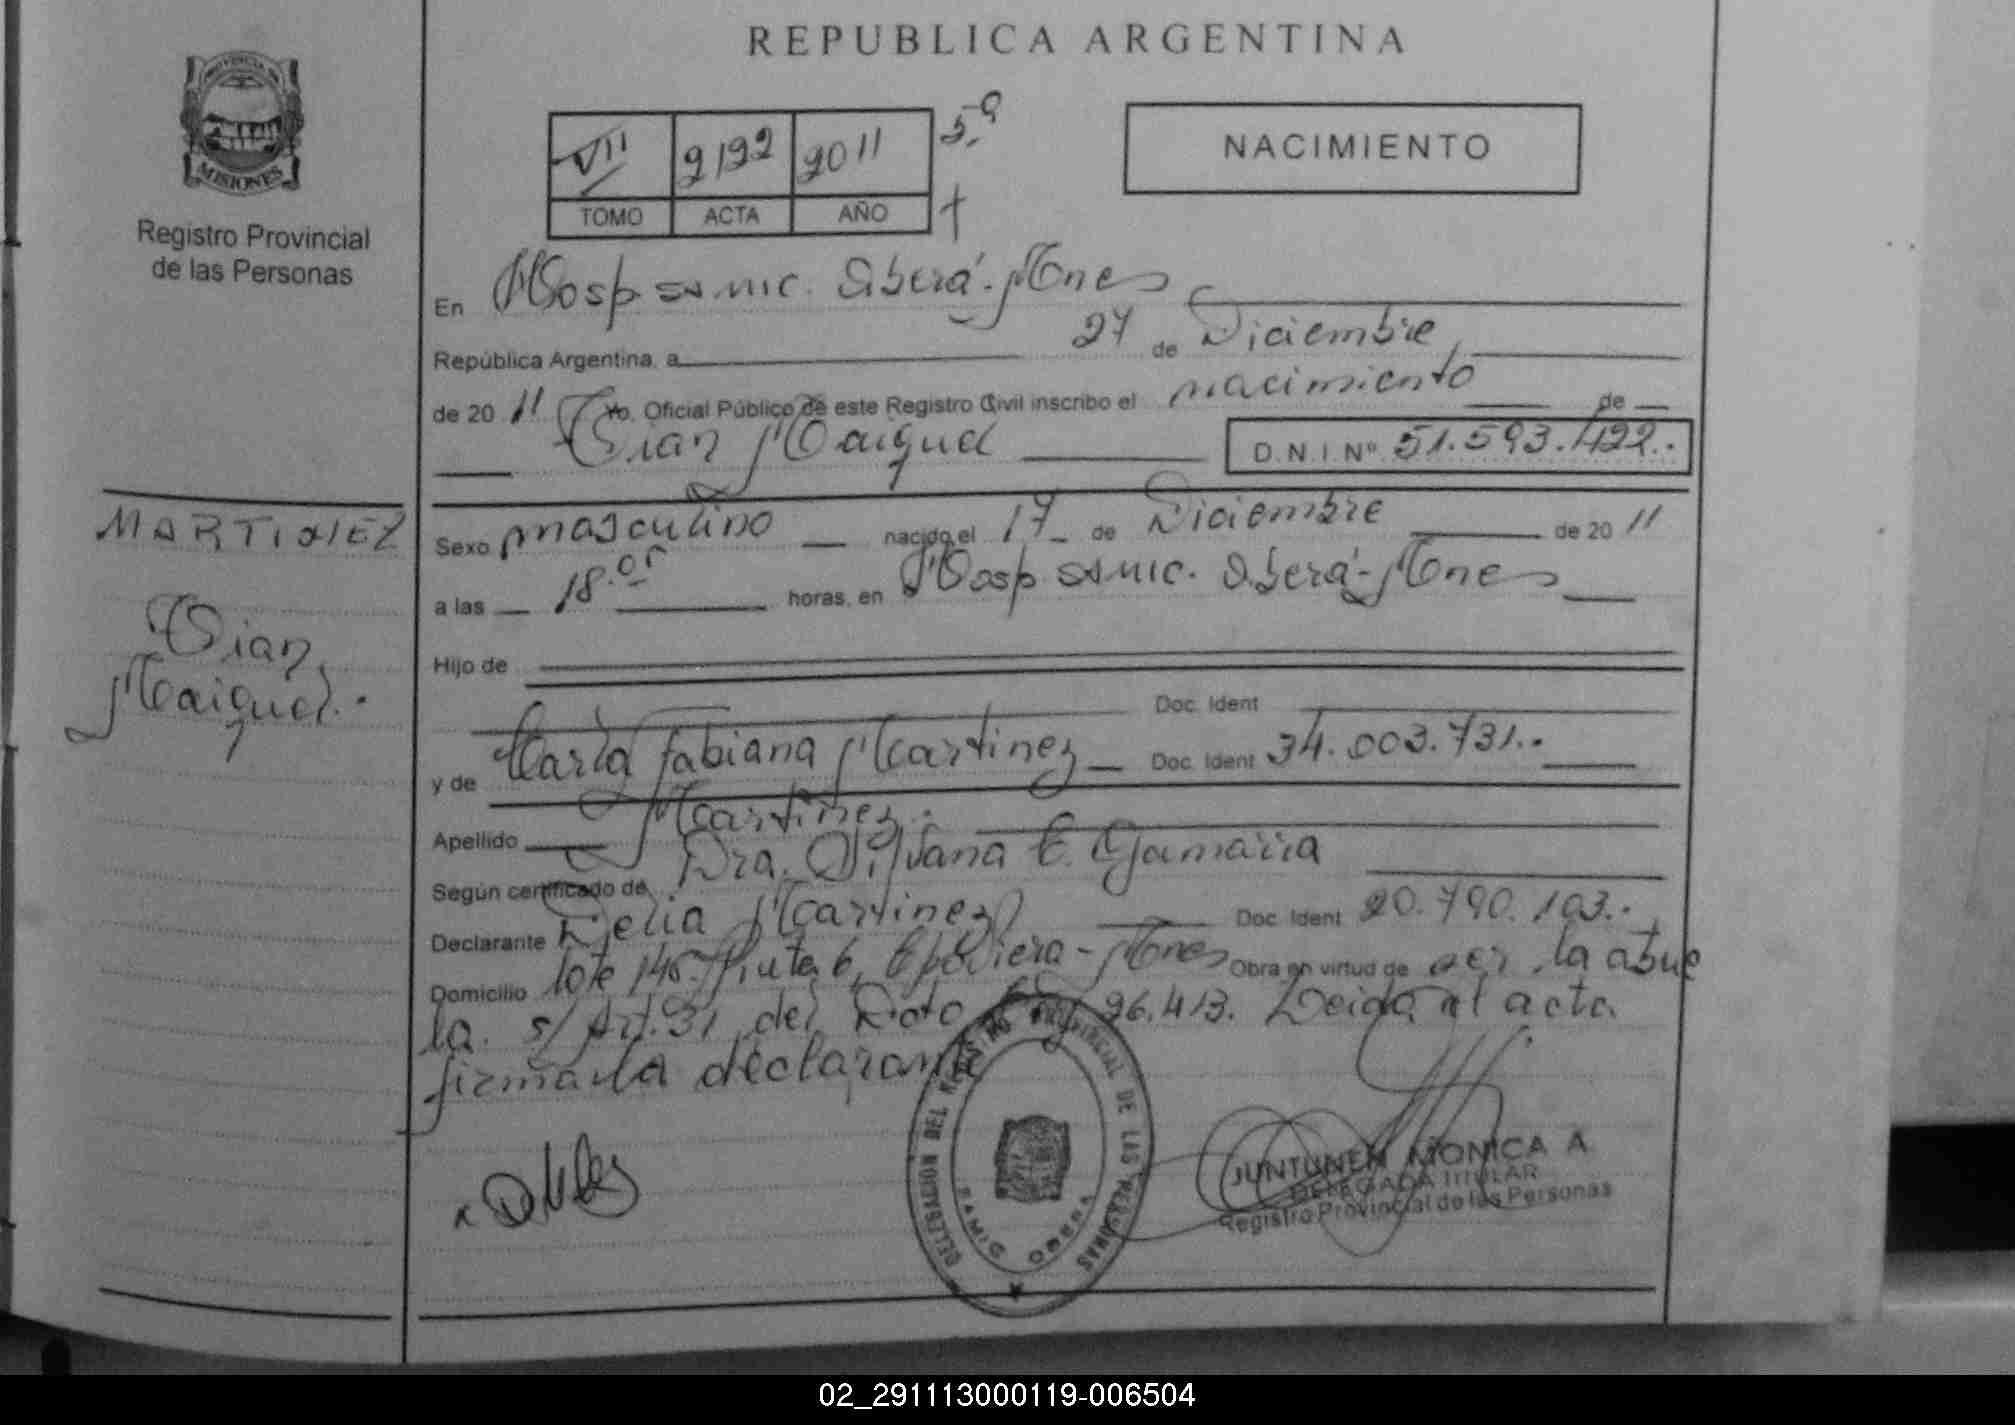 REPUBLICA ARGENTINA
PROVINCIA DE
MISIONES
Registro Provincial
de las Personas
VII 2192 2011 5ª
TOMO ACTA AÑO
NACIMIENTO
En Hosp samic. Oberá-Mnes
República Argentina, a 27 de Diciembre
de 2011 Yo, Oficial Público de este Registro Civil inscribo el nacimiento de
Gian Maiquel D.N.I. Nº 51.593.422.-
MARTINEZ
Gian
Maiquel.-
Sexo masculino nacido el 17 de Diciembre de 2011
a las 18.05 horas, en Hosp samic. Oberá-Mnes
Hijo de
Doc. Ident
y de María fabiana Martinez Doc. Ident 34.003.731.-
Apellido Martinez.-
Según certificado de Dra. Silvana E. Gamarra
Declarante Delia Martinez Doc. Ident 20.790.103.-
Domicilio lote 145. Ruta 6, C. Viera-Mnes Obra en virtud de ser la abue
la. s/ Art. 31 del Dcto Ley 26.413. Leida el acta
firma la declarante
DELEGACION DEL REGISTRO PROVINCIAL DE LAS PERSONAS
SAMIC OBERA
JUNTUNEN MONICA A
DELEGADA TITULAR
Registro Provincial de las Personas
02_291113000119-006504